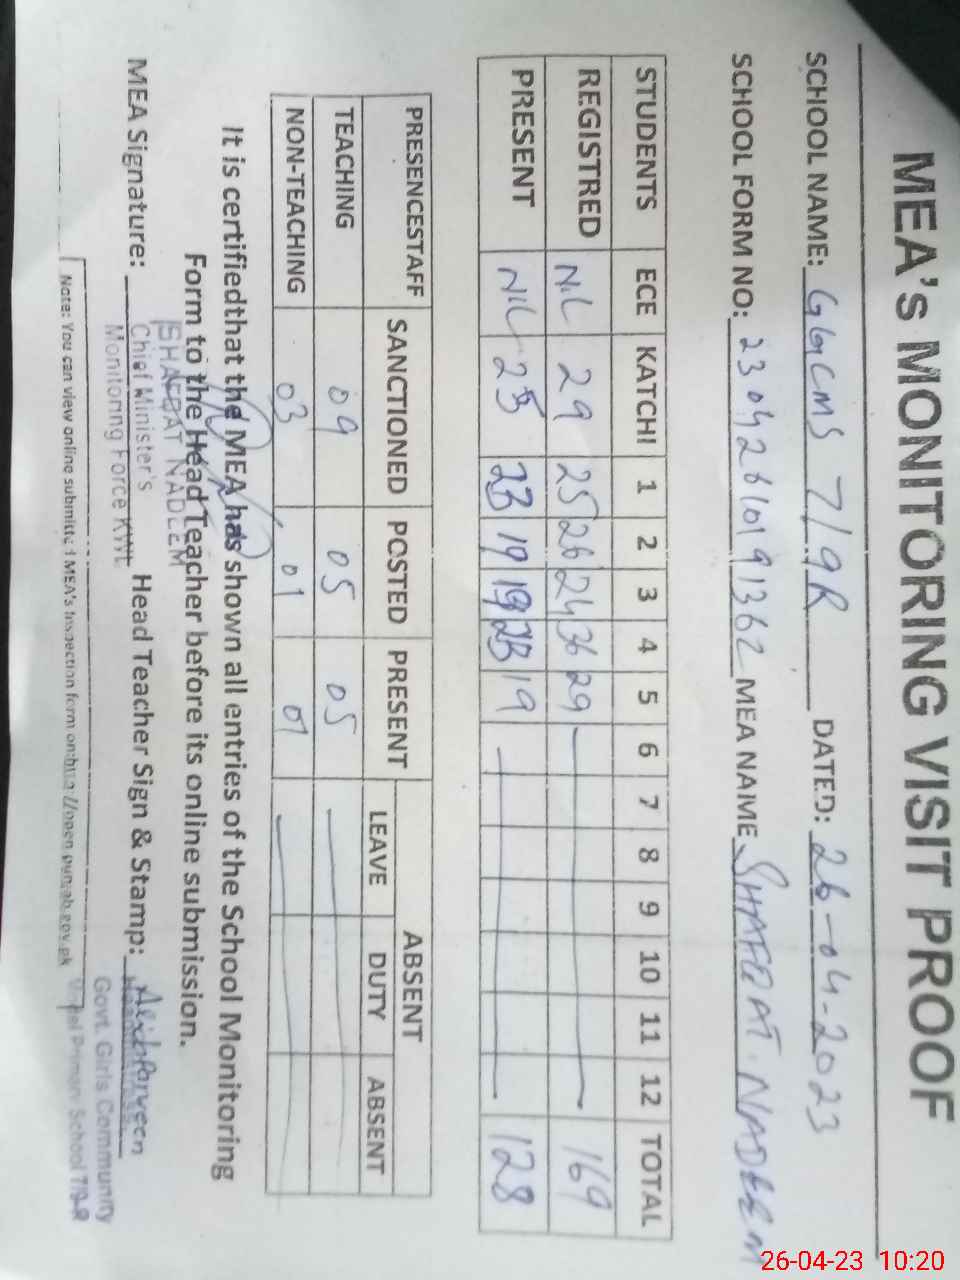 MEA's MONITORING VISIT PROOF
SCHOOL NAME: GGCMS 7/9R DATED: 26-04-2023
SCHOOL FORM NO: MEA NAME SHAFQAT. NADEEM
STUDENTS ECE KATCHI 1 2 3 4 5 6 7 8 9 10 11 12 TOTAL
REGISTRED NIL 29 25 26 24 36 29 169
PRESENT NIL 25 23 19 19 23 19 128
PRESENCESTAFF SANCTIONED POSTED PRESENT ABSENT
LEAVE DUTY ABSENT
TEACHING 09 05 05
NON-TEACHING 03 01 01
It is certifiedthat the MEA has shown all entries of the School Monitoring
Form to the Head Teacher before its online submission.
SHAFQAT NADEEM
MEA Signature: Head Teacher Sign & Stamp:
Chief Minister's
Monitoring Force KWL
Govt. Girls Community
Model Primary School 7/9-R
Note: You can view online submitted MEA's Inspection form on:http://open.punjab.gov.pk
26-04-23 10:20